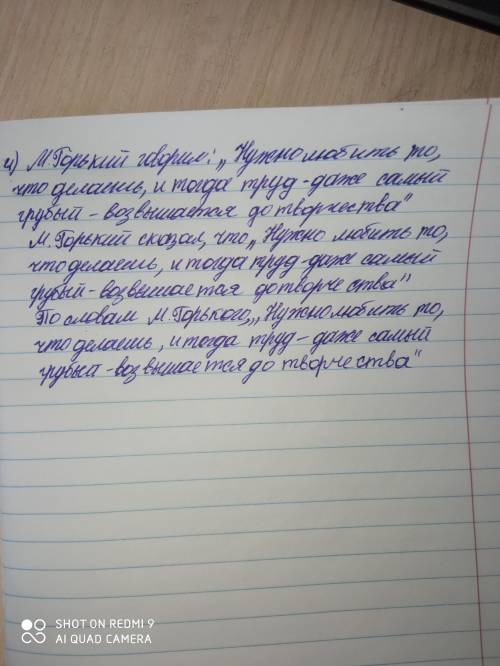 4) М Горький говорил: „Нужно любить то,
что делаешь, и тогда труд - даже самый
грубый - возвышается до творчества"
М. Горький сказал, что „Нужно любить то,
что делаешь, и тогда труд - даже самый
грубый - возвышается до творчества"
По словам М. Горького, „Нужно любить то,
что делаешь, и тогда труд - даже самый
грубый - возвышается до творчества"
SHOT ON REDMI 9
AI QUAD CAMERA